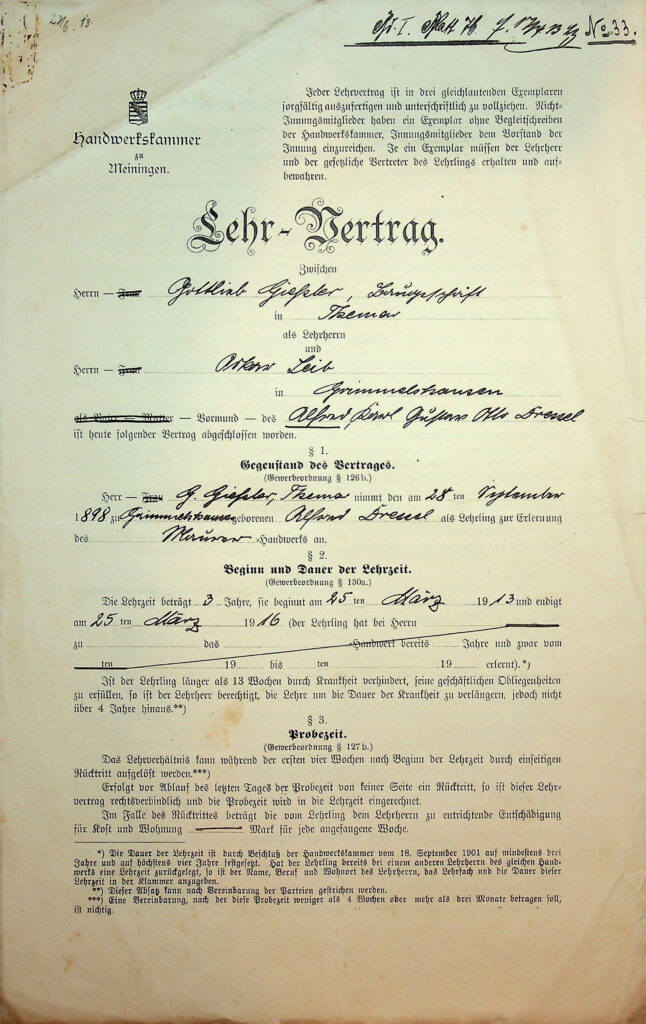 No 33.
Handwerkskammer
zu
Meiningen.
Jeder Lehrvertrag ist in drei gleichlautenden Exemplaren
sorgfältig auszufertigen und unterschriftlich zu vollziehen. Nicht-
Innungsmitglieder haben ein Exemplar ohne Begleitschreiben
der Handwerkskammer, Innungsmitglieder dem Vorstand der
Innung einzureichen. Je ein Exemplar müssen der Lehrherr
und der gesetzliche Vertreter des Lehrlings erhalten und auf-
bewahren.
Lehr-Vertrag.
Zwischen
Herrn — Frau Gottlieb Gießler, Baugeschäft
in Themar
als Lehrherrn
und
Herrn — Frau Oskar Leib
in Grimmelshausen
als Vater — Mutter — Vormund — des Alfred, Karl Gustav Otto Dressel
ist heute folgender Vertrag abgeschlossen worden.
§ 1.
Gegenstand des Vertrages.
(Gewerbeordnung § 126 b.)
Herr — Frau G. Gießler, Themar nimmt den am 28 ten September
1898 zu Grimmelshausen geborenen Alfred Dressel als Lehrling zur Erlernung
des Maurer-Handwerks an.
§ 2.
Beginn und Dauer der Lehrzeit.
(Gewerbeordnung § 130a.)
Die Lehrzeit beträgt 3 Jahre, sie beginnt am 25 ten März 1913 und endigt
am 25 ten März 1916 (der Lehrling hat bei Herrn
zu das -Handwerk bereits Jahre und zwar vom
ten 19 bis ten 19 erlernt).*)
Ist der Lehrling länger als 13 Wochen durch Krankheit verhindert, seine geschäftlichen Obliegenheiten
zu erfüllen, so ist der Lehrherr berechtigt, die Lehre um die Dauer der Krankheit zu verlängern, jedoch nicht
über 4 Jahre hinaus.**)
§ 3.
Probezeit.
(Gewerbeordnung § 127 b.)
Das Lehrverhältnis kann während der ersten vier Wochen nach Beginn der Lehrzeit durch einseitigen
Rücktritt aufgelöst werden.***)
Erfolgt vor Ablauf des letzten Tages der Probezeit von keiner Seite ein Rücktritt, so ist dieser Lehr-
vertrag rechtsverbindlich und die Probezeit wird in die Lehrzeit eingerechnet.
Im Falle des Rücktrittes beträgt die vom Lehrling dem Lehrherrn zu entrichtende Entschädigung
für Kost und Wohnung Mark für jede angefangene Woche.
*) Die Dauer der Lehrzeit ist durch Beschluß der Handwerkskammer vom 18. September 1901 auf mindestens drei
Jahre und auf höchstens vier Jahre festgesetzt. Hat der Lehrling bereits bei einem anderen Lehrherrn des gleichen Hand-
werks eine Lehrzeit zurückgelegt, so ist der Name, Beruf und Wohnort des Lehrherrn, das Lehrfach und die Dauer dieser
Lehrzeit in der Klammer anzugeben.
**) Dieser Absatz kann nach Vereinbarung der Parteien gestrichen werden.
***) Eine Vereinbarung, nach der diese Probezeit weniger als 4 Wochen oder mehr als drei Monate betragen soll,
ist nichtig.